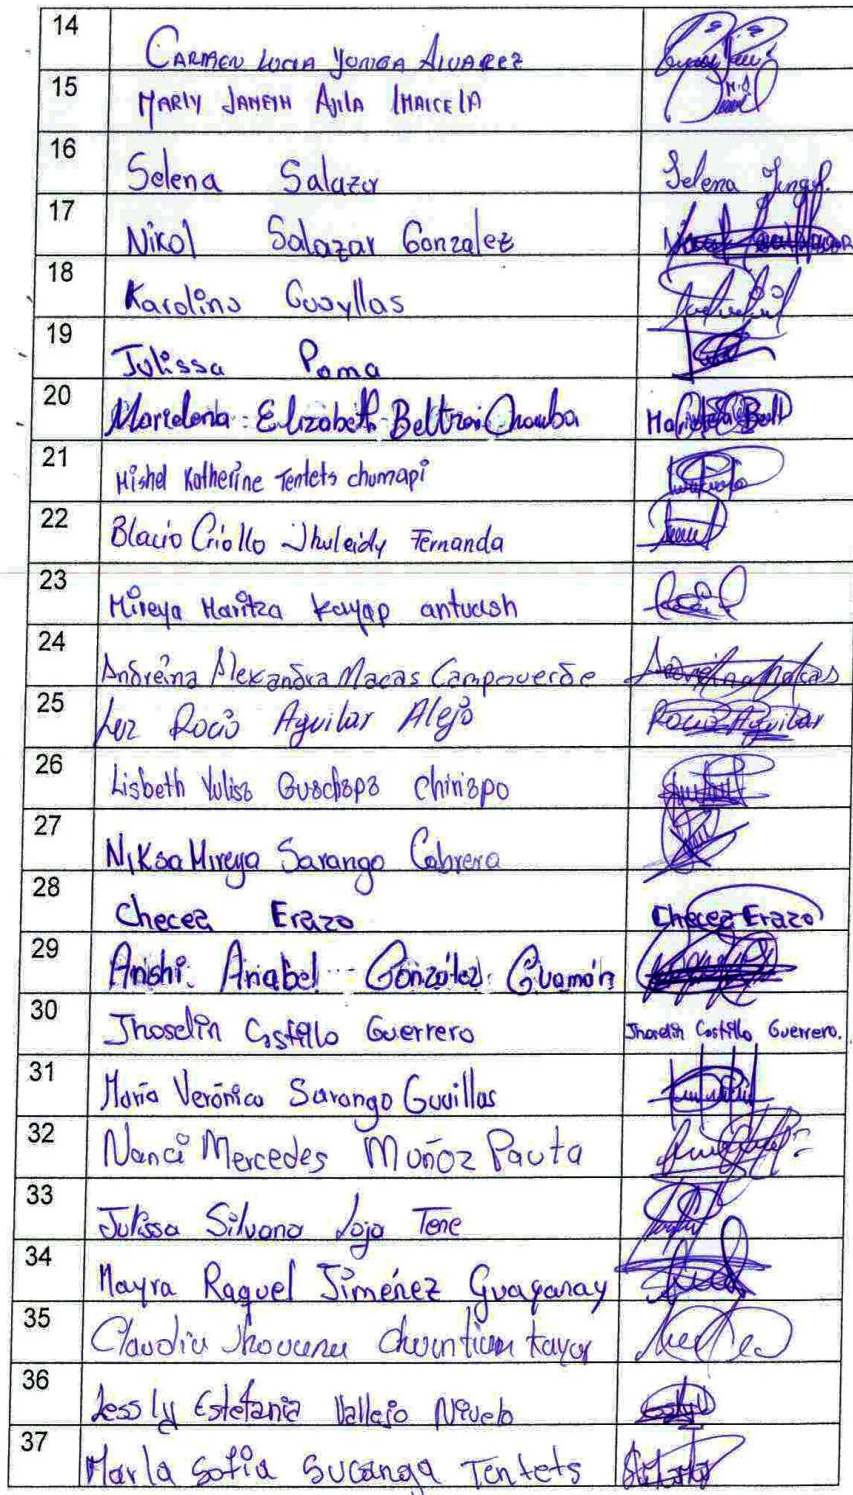 14 CARMEN LUCIA YUNGA ALVAREZ
15 MARLY JANETH AJILA IMAICELA
16 Selena Salazar Selena
17 Nikol Salazar Gonzalez
18 Karolina Guayllas
19 Julissa Poma
20 Marielena Elizabeth Beltran Chamba
21 Mishel Katherine Tentets chumapi
22 Blacio Criollo Jhuleidy Fernanda
23 Mireya Maritza Kayap antuash
24 Andreina Alexandra Macas Campoverde Andreina Macas
25 Luz Rocío Aguilar Alejo Rocío Aguilar
26 Lisbeth Yulisa Guachapa
27 Niksa Mireya Sarango Cabrera
28 Checea Erazo Checea Erazo
29 Anshi Anabel González Guamán
30 Jhoselin Castillo Guerrero Jhoselin Castillo Guerrero.
31 María Verónica Sarango Guaillas
32 Nanci Mercedes Muñoz Pauta
33 Julissa Silvana Lojo Tene
34 Mayra Raquel Jiménez Guayanay
35 Claudia Jhovana
36 Lessly Estefania Vallejo Nivelo
37 Marla Sofia Sucanga Tentets